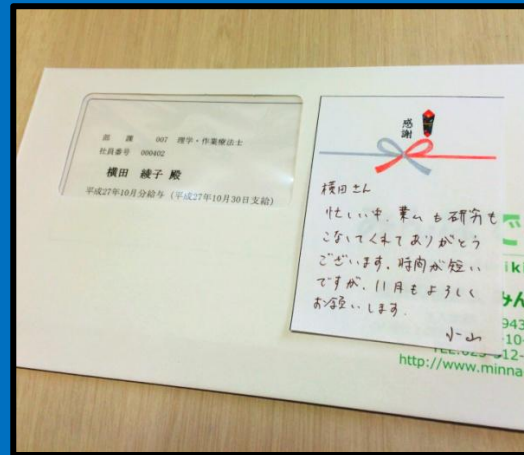 部 課 007 理学・作業療法士
社員番号 000402
横田 綾子 殿
平成27年10月分給与（平成27年10月30日支給）
感謝
横田さん
忙しい中、業ムも研究も
こなしてくれてありがとう
ございます。時間が短い
ですが、11月もよろしく
お願いします。
小山
http://www.minna